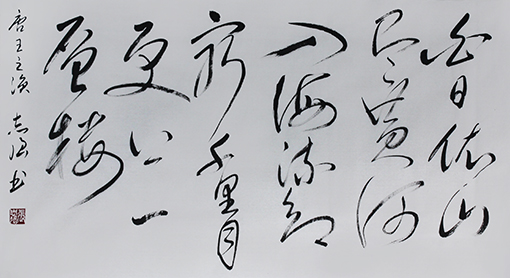 白日依山
尽黄河
入海流欲
窮千里目
更上一
層楼
唐王之涣 志强书